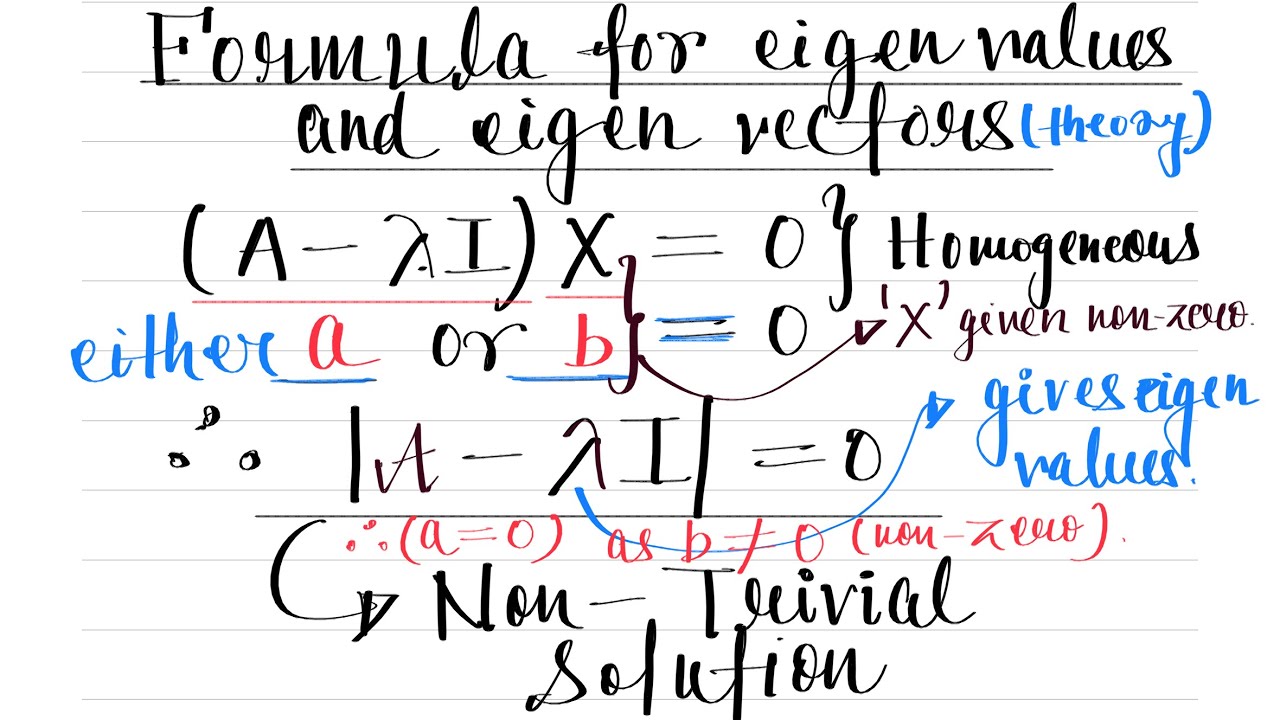 Formula for eigen values
and eigen vectors (theory)
(A - λI) X = 0 } Homogeneous
either a or b } = 0 'X' given non-zero.
∴ |A - λI| = 0 gives eigen
values.
∴ (a = 0) as b ≠ 0 (non-zero).
Non-Trivial
Solution